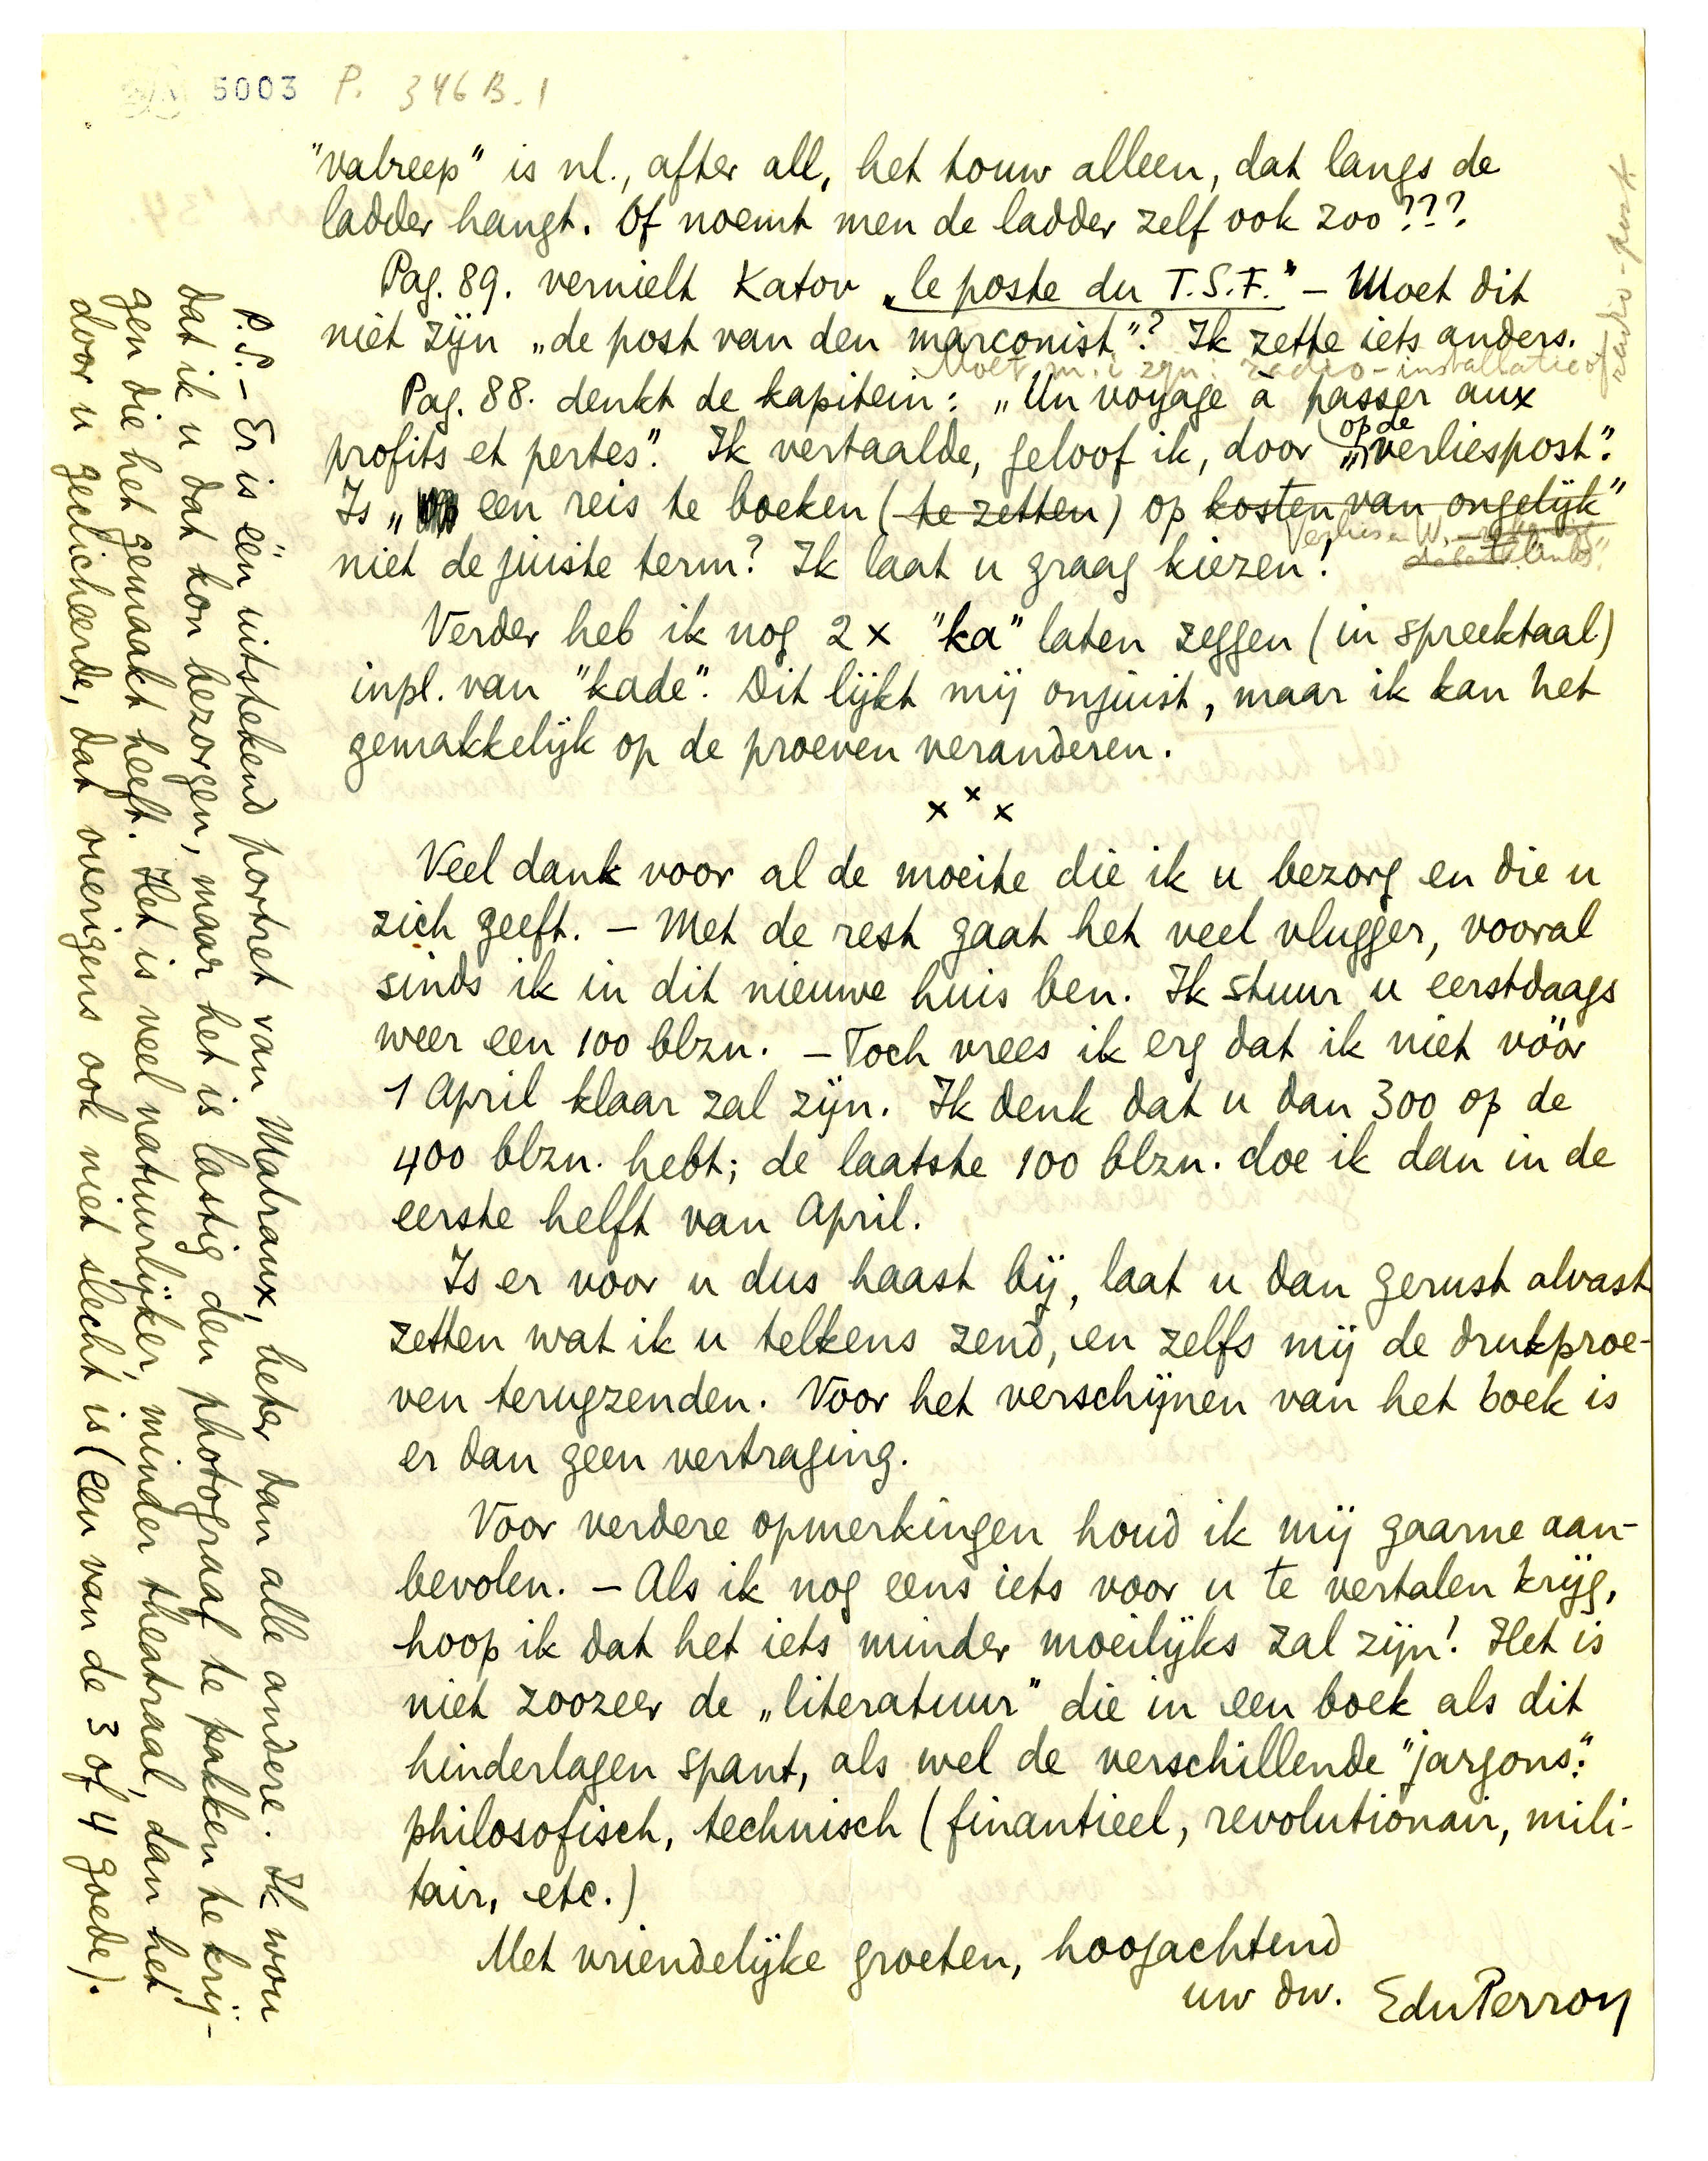 5003 P. 346 B. 1
"valreep" is nl., after all, het touw alleen, dat langs de
ladder hangt. Of noemt men de ladder zelf ook zoo???
Pag. 89. vernielt Katov „le poste du T.S.F." – Moet dit
niet zijn „de post van den marconist"? Ik zette iets anders.
Moet m.i. zijn: radio-installatie of
"radio-post
Pag. 88. denkt de kapitein: „Un voyage à passer aux
profits et pertes". Ik vertaalde, geloof ik, door „op de verliespost".
Is „een reis te boeken (te zetten) op kosten van ongelijk"
Verlies en W.
niet de juiste term? Ik laat u graag kiezen!
Verder heb ik nog 2 x "ka" laten zeggen (in spreektaal)
inpl. van "kade". Dit lijkt mij onjuist, maar ik kan het
gemakkelijk op de proeven veranderen.
x x x
Veel dank voor al de moeite die ik u bezorg en die u
zich geeft. – Met de rest gaat het veel vlugger, vooral
sinds ik in dit nieuwe huis ben. Ik stuur u eerstdaags
weer een 100 blzn. – Toch vrees ik erg dat ik niet vóór
1 April klaar zal zijn. Ik denk dat u dan 300 op de
400 blzn. hebt; de laatste 100 blzn. doe ik dan in de
eerste helft van April.
Is er voor u dus haast bij, laat u dan gerust alvast
zetten wat ik u telkens zend, en zelfs mij de drukproe-
ven terugzenden. Voor het verschijnen van het boek is
er dan geen vertraging.
Voor verdere opmerkingen houd ik mij gaarne aan-
bevolen. – Als ik nog eens iets voor u te vertalen krijg,
hoop ik dat het iets minder moeilijks zal zijn! Het is
niet zoozeer de „literatuur" die in een boek als dit
hinderlagen spant, als wel de verschillende "jargons":
philosofisch, technisch (finantieel, revolutionair, mili-
tair, etc.)
Met vriendelijke groeten, hoogachtend
uw dw. EduPerron
P.S. – Er is één uitstekend portret van Malraux, beter dan alle andere. Ik wou
dat ik u dat kon bezorgen, maar het is lastig den photograaf te pakken te krij-
gen die het gemaakt heeft. Het is veel natuurlijker, minder theatraal, dan het
door u gecliceerde, dat overigens ook niet slecht is (een van de 3 of 4 goede).